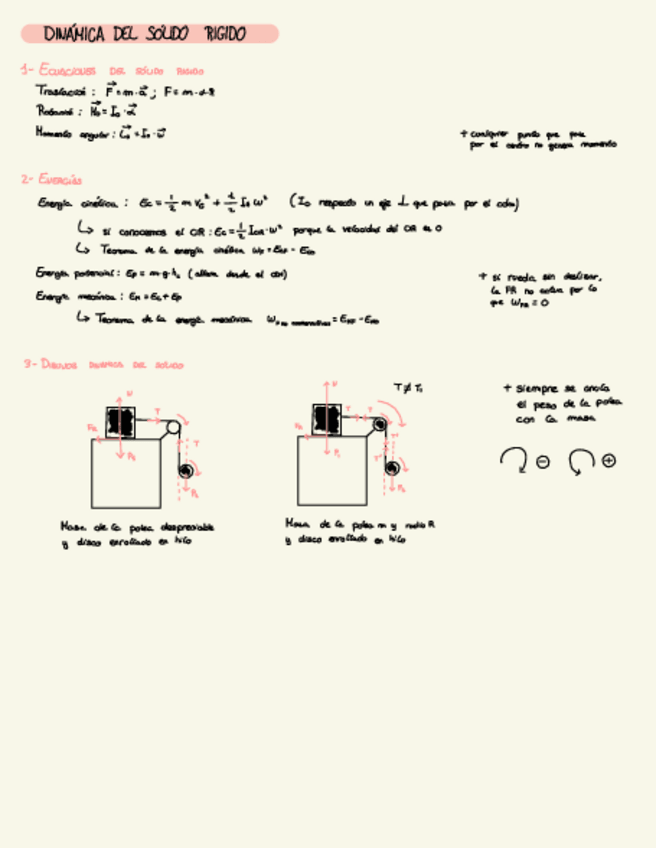 DINÁMICA DEL SÓLIDO RÍGIDO
1- ECUACIONES DEL SÓLIDO RIGIDO
Traslación: F = m·a ; F = m·α·R
Rotación: M₀ = I₀·α
Momento angular: L₀ = I₀·ω
+ cualquier punto que pase
por el centro no genera momento
2- ENERGÍAS
Energía cinética: Ec = 1/2 m v_G² + 1/2 I₀ ω² (I₀ respecto un eje ⊥ que pasa por el cdm)
↳ si conocemos el CIR: Ec = 1/2 I_CIR·ω² porque la velocidad del CIR es 0
↳ Teorema de la energía cinética
Energía potencial: Ep = m·g·h (altura desde el cdm)
Energía mecánica: Em = Ec + Ep
↳ Teorema de la energía mecánica
+ si rueda sin deslizar,
la FR no actúa por lo
que W_FR = 0
3- DIBUJOS DINÁMICA DEL SÓLIDO
N
T
FR
T
Masa de la polea despreciable
y disco enrollado en hilo
N
T
T
FR
T'
T'
Masa de la polea m y radio R
y disco enrollado en hilo
+ siempre se anula
el peso de la polea
con la masa
⊖ ⊕